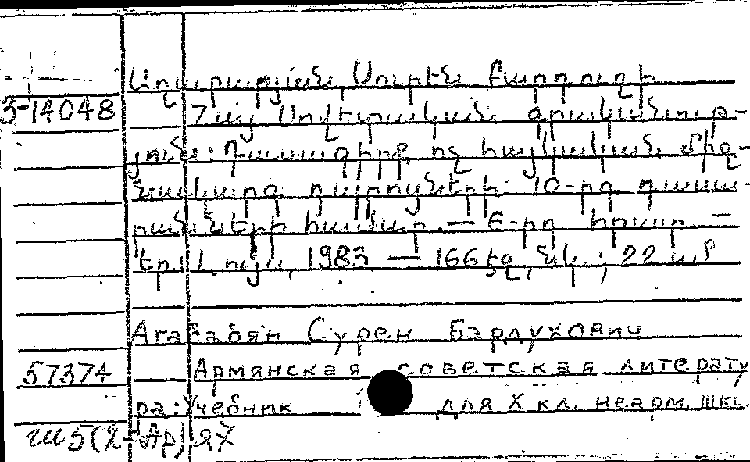 Աղաբաբյան Սուրեն Բարդուղի
5-14048 Հայ Սովետական գրականութ-
յուն: Դասագիրք ոչ հայկական միջ-
նակարգ դպրոցների 10-րդ դասա-
րանների համար. — 6-րդ հրատ. —
Եր.: Լույս, 1983 — 166 էջ, նկ.; 22 սմ
Агабабян Сурен Бардухович
57374 Армянская советская литерату
ра: Учебник для X кл. неарм. шк.
ш5(2-Ар) 27